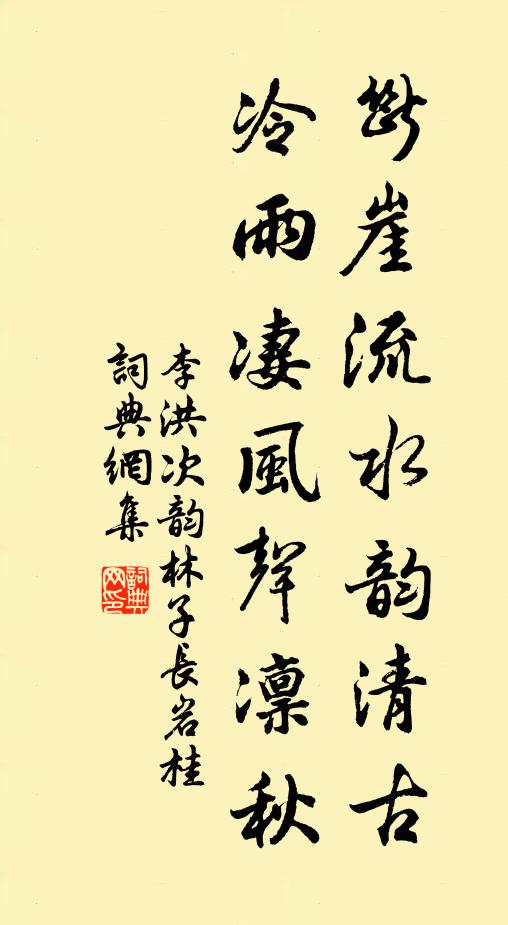 斷崖流水韵清古
冷雨淒風聲凛秋
李洪次韵林子長岩桂
詞典網集
詞典網印